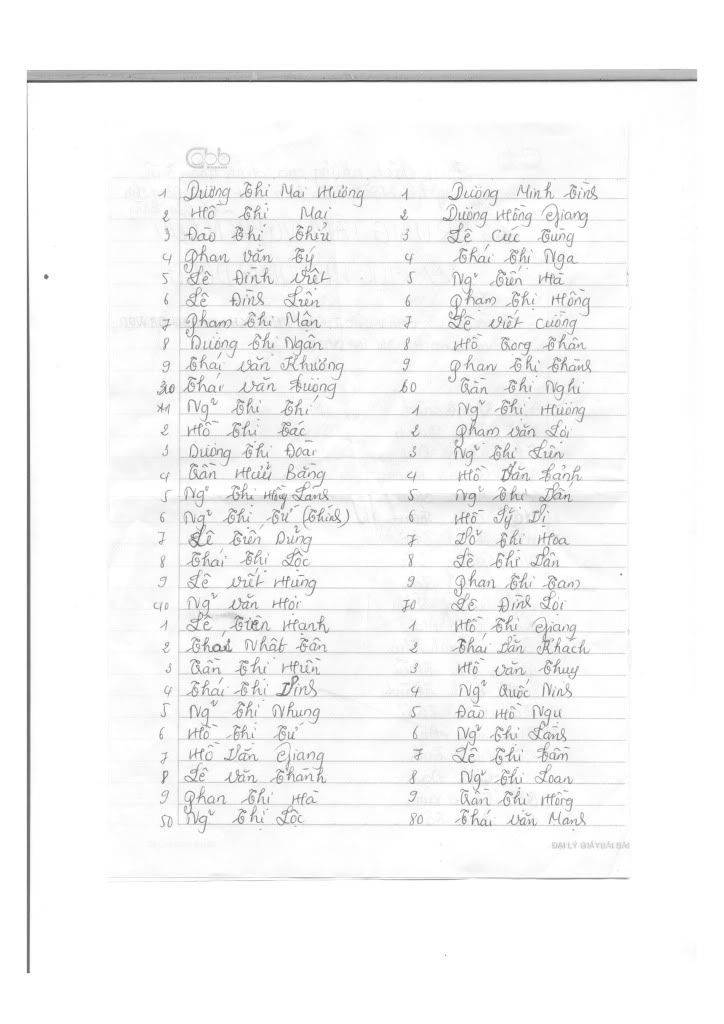 1 Dương Thị Mai Hường
2 Hồ Thị Mai
3 Đào Thị Thiủ
4 Phan Văn Tý
5 Lê Đình Việt
6 Lê Đình Liên
7 Phạm Thị Mận
8 Dương Thị Ngân
9 Thái Văn Khương
30 Thái Văn Đường
1 Ngũ Thị Thí
2 Hồ Thị Các
3 Dương Thị Đoài
4 Trần Hữu Bằng
5 Ngũ Thị Hồng
6 Ngũ Thị Tứ (Thính)
7 Lê Tiến Dũng
8 Thái Thị Lộc
9 Lê Viết Hùng
40 Ngũ Văn Hòi
1 Lê Tiến Hạnh
2 Thái Nhật Tân
3 Trần Thị Hiền
4 Thái Thị Vinh
5 Ngũ Thị Nhung
6 Hồ Thị Tứ
7 Hồ Văn Giang
8 Lê Văn Thành
9 Phan Thị Hà
50 Ngũ Thị Lộc
1 Dương Minh Tình
2 Dương Hồng Giang
3 Lê Cúc Tùng
4 Thái Thị Nga
5 Ngũ Tiến Hà
6 Phạm Thị Hồng
7 Lê Viết Cường
8 Hồ Trọng Thân
9 Phan Thị Thành
60 Trần Thị Nghi
1 Ngũ Thị Hương
2 Phạm Văn Lợi
3 Ngũ Thị Liên
4 Hồ Văn Cảnh
5 Ngũ Thị Dần
6 Hồ Sỹ Vị
7 Võ Thị Hoa
8 Lê Thị Vân
9 Phan Thị Tam
70 Lê Đình Lợi
1 Hồ Thị Giang
2 Thái Văn Khách
3 Hồ Văn Thuỵ
4 Ngũ Quốc Ninh
5 Đào Hồ Ngụ
6 Ngũ Thị Lành
7 Lê Thị Cầm
8 Ngũ Thị Loan
9 Trần Thị Hồng
80 Thái Văn Mạnh
ĐẠI LÝ GIẤY BÃI BẰ